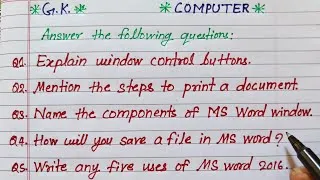 *G.K.* *COMPUTER*
Answer the following questions:
Q1. Explain window control buttons.
Q2. Mention the steps to print a document.
Q3. Name the components of MS Word window.
Q4. How will you save a file in MS word?
Q5. Write any five uses of MS word 2016.